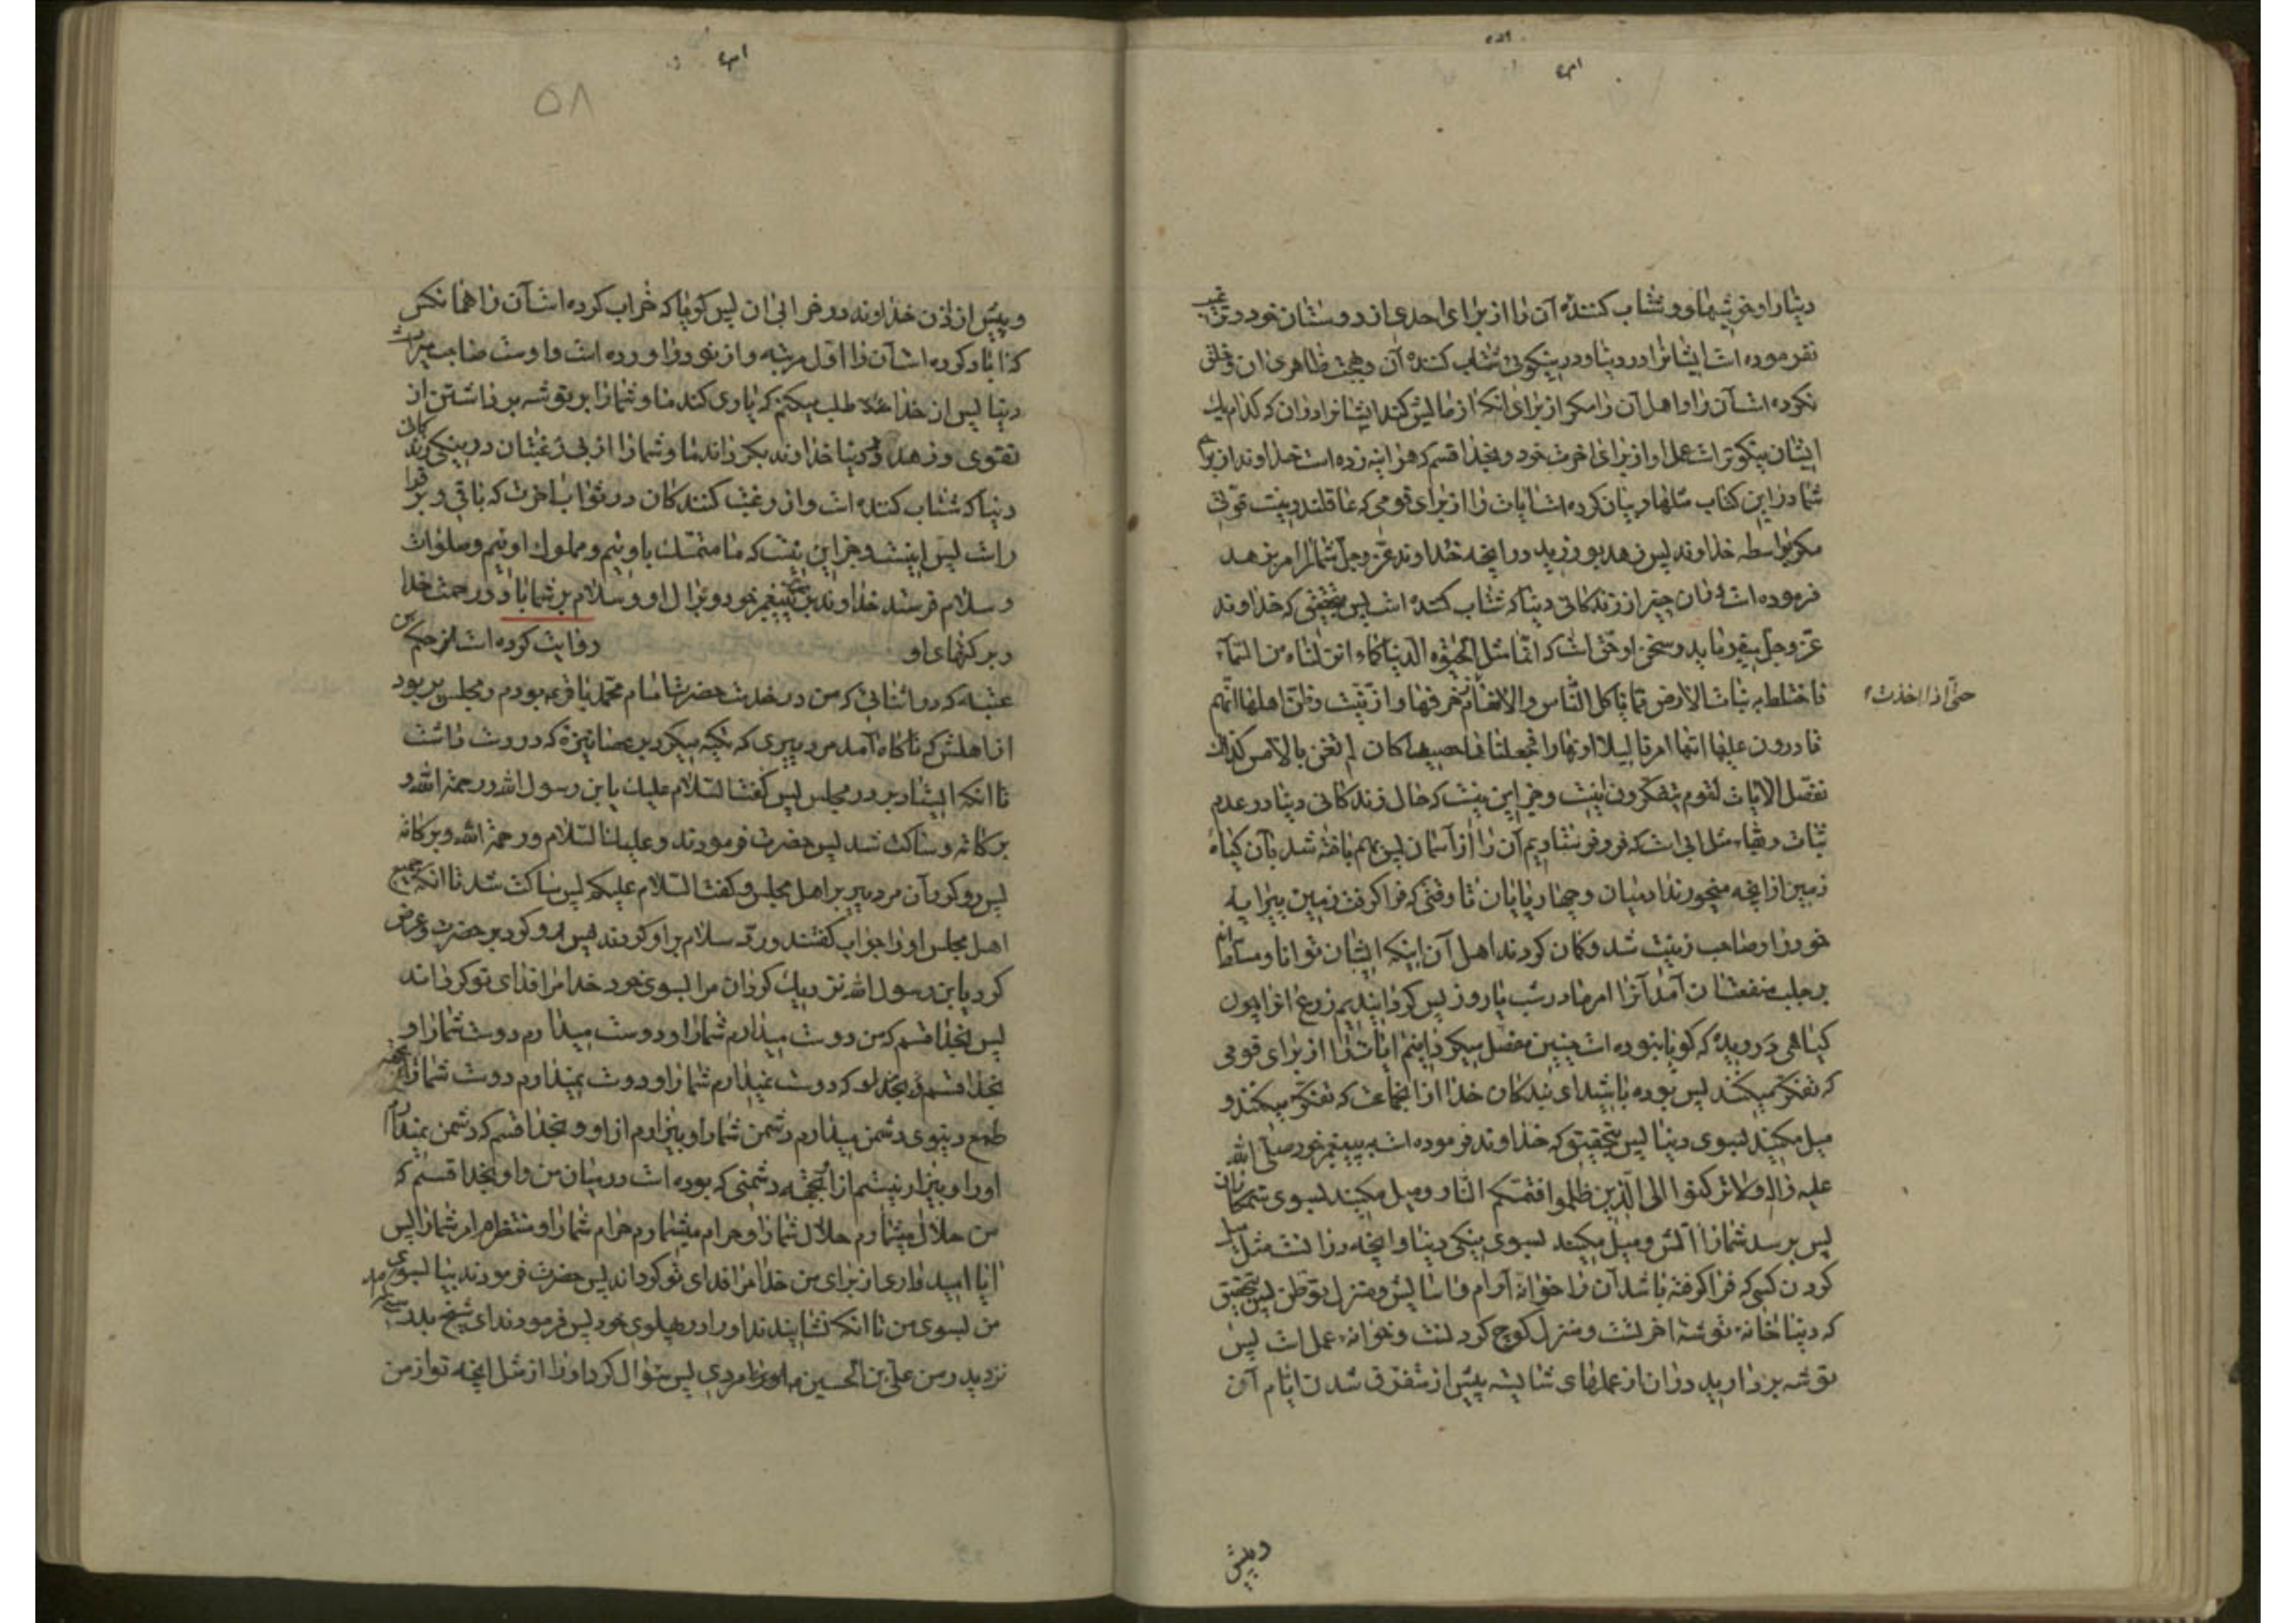 دنیا را و خوشیها و شتاب کننده آن را از برای احدی از دوستان خود و ترغیب
نفرموده است ایشانرا در دنیا و در نیکوئی شتاب کننده آن و بهجت ظاهری آن و خلق
نکرده است آن را و اهل آن را مگر از برای آنکه آزمایش کند ایشانرا در آن که کدام یک
ایشان نیکوتر است عمل او از برای آخرت خود و بخدا قسم که هر آینه زده است خداوند از برای
شما در این کتاب مثلها و بیان کرده است آیات را از برای قومی که عاقلند و نیست قوتی
مگر بواسطه خداوند پس زهد بورزید در آنچه خداوند عز و جل شما را امر بزهد
فرموده است در آن چیز از زندگانی دنیا که شتاب کننده است پس بتحقیق که خداوند
عز و جل میفرماید و سخن او حق است که انما مثل الحیوة الدنیا کماء انزلناه من السماء
فاختلط به نبات الارض مما یاکل الناس والانعام زخرفها و ازینت و ظن اهلها انهم
حتی اذا اخذت
قادرون علیها اتیها امرنا لیلا او نهارا فجعلناها حصیدا کان لم تغن بالامس کذلک
نفصل الآیات لقوم یتفکرون نیست و جز این نیست که حال زندگانی دنیا در عدم
ثبات و بقاء مثل آبی است که فرو فرستادیم آن را از آسمان پس بهم بافته شد بآن گیاه
زمین از آنچه میخورند آدمیان و چهارپایان تا وقتی که فرا گرفت زمین پیرایه
خود را و صاحب زینت شد و گمان کردند اهل آن اینکه ایشان توانا و مسلطند
بر جلب منفعتان آمد آنرا امر ما در شب یا روز پس گردانیدیم زروع آنرا چون
گیاهی درویده که گویا نبوده است چنین مفصل میگردانیم آیات را از برای قومی
که تفکر میکنند پس بوده باشید ای بندگان خدا از آنجماعت که تفکر میکنند و
میل مکنید بسوی دنیا پس بتحقیق که خداوند فرموده است به پیغمبر خود صلی الله
علیه و آله ولا ترکنوا الی الذین ظلموا فتمسکم النار و میل مکنید بسوی ستمکاران
پس برسد شما را آتش و میل مکنید بسوی نیکی دنیا و آنچه در آنست مثل میل
کردن کسی که فرا گرفته باشد آن را خوانه آرام و آسایش و منزل توطن پس بتحقیق
که دنیا خانه توشه آخرتست و منزل کوچ کردنست و خوانه عمل است پس
توشه بردارید در آن از عملهای شایسته پیش از متفرق شدن ایام آن
و پیش
۵۸
و پیش از اذن خداوند در خرابی آن پس گویا که خراب کرده است آن را همانکس
که آباد کرده است آن را اول مرتبه و از نو در آورده است و اوست صاحب میراث
دنیا پس از خدا طلب میکنم که یاری کند ما و شما را بر توشه برداشتن از
تقوی و زهد در دنیا خداوند بگرداند ما و شما را از بی رغبتان در نیکی زندگانی
دنیا که شتاب کننده است و از رغبت کنندگان در ثواب آخرت که باقی و برقرار
است پس اینست و جز این نیست که ما متمسک باوئیم و مملوک اوئیم و صلوات
و سلام فرستد خداوند بر پیغمبر خود و بر آل او و سلام بر شما باد و رحمت خدا
و برکتهای او روایت کرده است از حکم بن
عتبه که در اثنائی که من در خدمت حضرت امام محمد باقر بودم و مجلس پر بود
از اهلش که ناگاه آمد مرد پیری که تکیه میکرد بر عصا نیزه که در دست داشت
تا آنکه ایستاد بر در مجلس پس گفت السلام علیک یابن رسول الله و رحمة الله و
برکاته و ساکت شد پس حضرت فرمودند و علیک السلام و رحمة الله و برکاته
پس رو کرد آن مرد پیر بر اهل مجلس و گفت السلام علیکم پس ساکت شد تا آنکه جمیع
اهل مجلس او را جواب گفتند و رد سلام بر او کردند پس رو کرد بر حضرت و عرض
کرد یابن رسول الله نزدیک گردان مرا بسوی خود خدا مرا فدای تو گرداند
پس بخدا قسم که من دوست میدارم شما را و دوست میدارم دوست شما را و
بخدا قسم که دوست نمیدارم شما را و دوست نمیدارم دوست شما را بجهة
طمع دنیوی دشمن میدارم دشمن شما را و بیزارم از او و بخدا قسم که دشمن نمیدارم
او را و بیزار نیستم از بجهة دشمنی که بوده است در میان من و او بخدا قسم که
من حلال میشمارم حلال شما را و حرام میشمارم حرام شما را و منتظرم امر شما را پس
آیا امید داری از برای من خدا مرا فدای تو گرداند پس حضرت فرمودند بیا بسوی
من بسوی من تا آنکه نشانیدند او را در پهلوی خود پس فرمودند ای شیخ
نزد پدر من علی بن الحسین مردی پس سؤال کرد او را از مثل آنچه تو از من